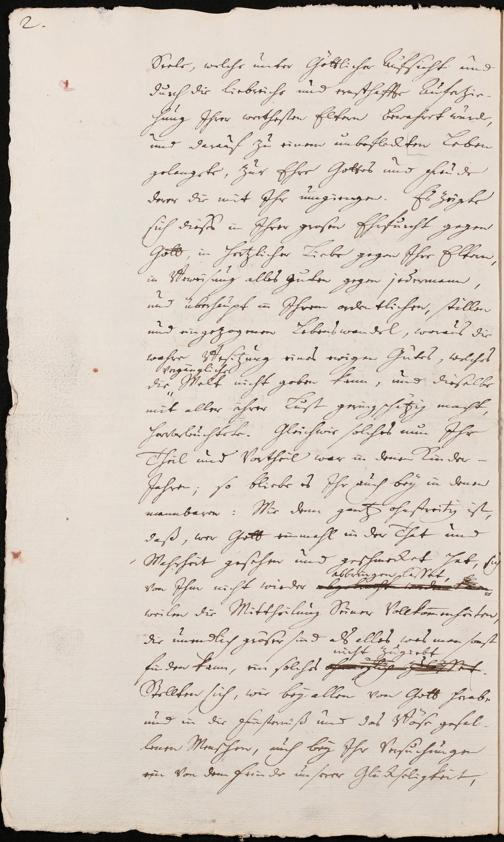 2.
Seele, welche unter Göttlicher Aufsicht und
durch die liebreiche und ernsthaffte Auferzie-
hung Ihrer werthesten Eltern bewahret wurde,
und darauf zu einem unbeflekten Leben
gelangte, zur Ehre Gottes und Freude
derer die mit Ihr umgiengen. Es zeigte
sich dieses in Ihrer grosen Ehrfurcht gegen
Gott, in hertzlicher Liebe gegen Ihre Eltern,
in Erweisung alles guten gegen jedermann,
und überhaupt in Ihrem ordentlichen, stillen
und eingezogenen Lebenswandel, woraus die
wahre Besitzung eines ewigen Gutes, welches
vergängliche
die Welt nicht geben kann, und dieselbe
mit aller ihrer Lust geringschätzig macht,
hervorleuchtete. Gleichwie solches nun Ihr
Theil und Vortheil war in denen Kinder-
Jahren; so bliebe es Ihr auch bey in denen
mannbaren: Wie denn gantz ohnstreitig ist,
daß, wer Gott einmahl in der That und
Wahrheit gesehen und geschmecket hat, sich
abbringen lasset,
von Ihm nicht wieder
weilen die Mittheilung Seiner Vollkommenheiten,
die unendlich gröser sind als alles was man sonst
nicht zugiebt
finden kann, ein solches
Stellten sich, wie bey allen von Gott
und in die Finsterniß und das Böse gefal-
lenen Menschen, auch bey Ihr Versuchungen
ein von dem Feinde unserer Glükseligkeit,